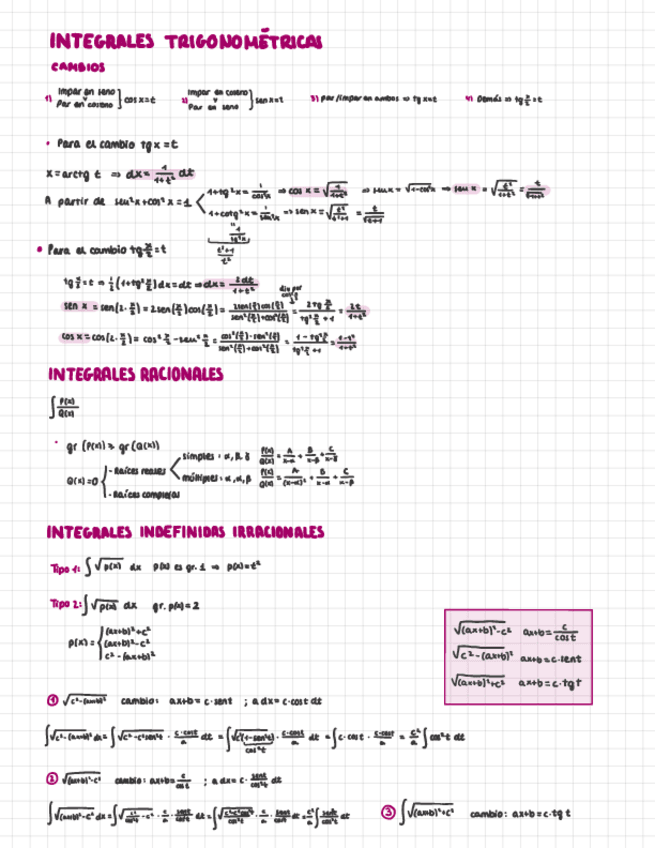 INTEGRALES TRIGONOMÉTRICAS
CAMBIOS
1) Impar en seno y Par en coseno } cos x = t 2) Impar en coseno y Par en seno } sen x = t 3) par/impar en ambos ⇒ tg x = t 4) Demás ⇒ tg x/2 = t
• Para el cambio tg x = t
x = arctg t ⇒ dx = 1/(1+t²) dt
A partir de sen²x + cos²x = 1
1 + tg²x = 1/cos²x ⇒ cos x = √(1/(1+t²)) ⇒ sen x = √(1-cos²x) ⇒ sen x = √(t²/(1+t²)) = t/√(1+t²)
1 + cotg²x = 1/sen²x ⇒ sen x = √(t²/(t²+1)) = t/√(t²+1)
1/tg²x
(t²+1)/t²
• Para el cambio tg x/2 = t
tg x/2 = t ⇒ 1/2 (1+tg² x/2) dx = dt ⇒ dx = 2dt/(1+t²)
div por cos² x/2
sen x = sen(2· x/2) = 2sen(x/2)cos(x/2) = 2sen(x/2)cos(x/2)/(sen²(x/2)+cos²(x/2)) = 2tg x/2/(tg² x/2 + 1) = 2t/(1+t²)
cos x = cos(2· x/2) = cos² x/2 - sen² x/2 = (cos²(x/2)-sen²(x/2))/(sen²(x/2)+cos²(x/2)) = (1-tg² x/2)/(tg² x/2 + 1) = (1-t²)/(1+t²)
INTEGRALES RACIONALES
∫ P(x)/Q(x)
• gr (P(x)) ≥ gr (Q(x))
Q(x)=0 { - Raíces reales
simples: α, β, γ P(x)/Q(x) = A/(x-α) + B/(x-β) + C/(x-γ)
múltiples: α, α, β P(x)/Q(x) = A/(x-α)² + B/(x-α) + C/(x-β)
- Raíces complejas
INTEGRALES INDEFINIDAS IRRACIONALES
Tipo 1: ∫ √p(x) dx p(x) es gr. 1 ⇒ p(x) = t²
Tipo 2: ∫ √p(x) dx gr. p(x) = 2
p(x) = { (ax+b)²+c²
(ax+b)²-c²
c²-(ax+b)²
√((ax+b)²-c²) ax+b = c/cos t
√(c²-(ax+b)²) ax+b = c·sen t
√((ax+b)²+c²) ax+b = c·tg t
① √(c²-(ax+b)²) cambio: ax+b = c·sen t ; a dx = c·cos t dt
∫√(c²-(ax+b)²) dx = ∫√(c²-c²sen²t) · c·cos t/a dt = ∫√(c²(1-sen²t)) · c·cos t/a dt = ∫ c·cos t · c·cos t/a = c²/a ∫ cos²t dt
cos²t
② √((ax+b)²-c²) cambio: ax+b = c/cos t ; a dx = c· sen t/cos²t dt
③ ∫√((ax+b)²+c²) cambio: ax+b = c·tg t